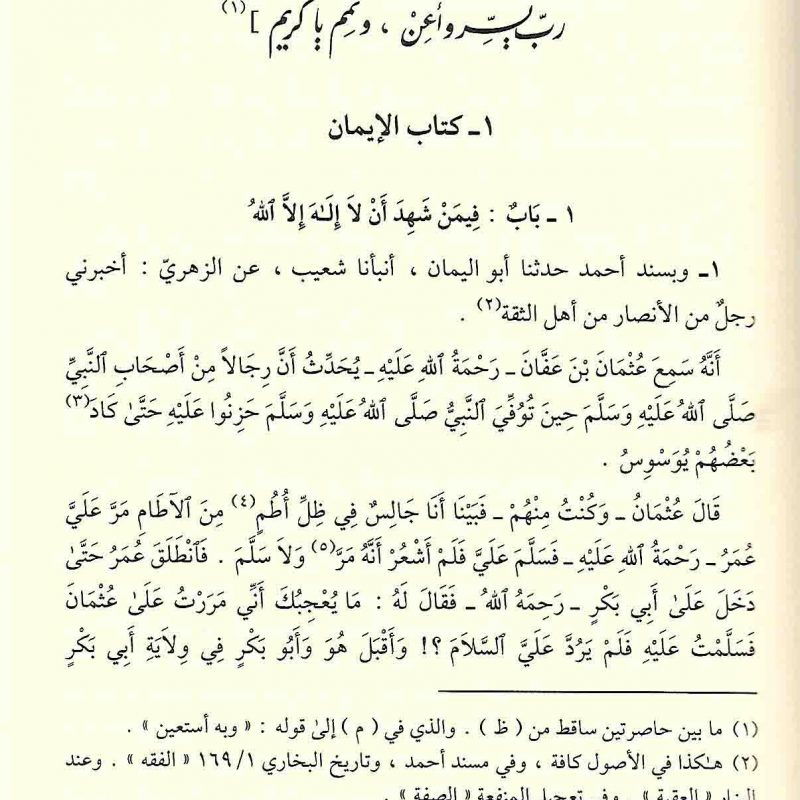 ربّ يسّر وأعِنْ ، وتمم يا كريم ](١)
١ـ كتاب الإيمان
١ ـ بَابٌ : فِيمَنْ شَهِدَ أَنْ لاَ إِلَـٰهَ إِلاَّ ٱللهُ
١ـ وبسند أحمد حدثنا أبو اليمان ، أنبأنا شعيب ، عن الزهريّ : أخبرني
رجلٌ من الأنصار من أهل الثقة(٢) .
أَنَّهُ سَمِعَ عُثْمَانَ بْنَ عَفَّانَ ـ رَحْمَةُ ٱللهِ عَلَيْهِ ـ يُحَدِّثُ أَنَّ رِجَالاً مِنْ أَصْحَابِ ٱلنَّبِيِّ
صَلَّى ٱللهُ عَلَيْهِ وَسَلَّمَ حِينَ تُوُفِّيَ ٱلنَّبِيُّ صَلَّى ٱللهُ عَلَيْهِ وَسَلَّمَ حَزِنُوا عَلَيْهِ حَتَّىٰ كَادَ(٣)
بَعْضُهُمْ يُوَسْوِسُ .
قَالَ عُثْمَانُ ـ وَكُنْتُ مِنْهُمْ ـ فَبَيْنَا أَنَا جَالِسٌ فِي ظِلِّ أُطُمٍ(٤) مِنَ ٱلآطَامِ مَرَّ عَلَيَّ
عُمَرُ ـ رَحْمَةُ ٱللهِ عَلَيْهِ ـ فَسَلَّمَ عَلَيَّ فَلَمْ أَشْعُرْ أَنَّهُ مَرَّ(٥) وَلاَ سَلَّمَ . فَٱنْطَلَقَ عُمَرُ حَتَّىٰ
دَخَلَ عَلَىٰ أَبِي بَكْرٍ ـ رَحِمَهُ ٱللهُ ـ فَقَالَ لَهُ : مَا يُعْجِبُكَ أَنِّي مَرَرْتُ عَلَىٰ عُثْمَانَ
فَسَلَّمْتُ عَلَيْهِ فَلَمْ يَرُدَّ عَلَيَّ ٱلسَّلاَمَ ؟! وَأَقْبَلَ هُوَ وَأَبُو بَكْرٍ فِي وِلاَيَةِ أَبِي بَكْرٍ
(١) ما بين حاصرتين ساقط من ( ظ ) . والذي في ( م ) إلىٰ قوله : « وبه أستعين » .
(٢) هـٰكذا في الأصول كافة ، وفي مسند أحمد ، وتاريخ البخاري ١/ ١٦٩ « الفقه » . وعند
البزار « العقبة » . وفي تعجيل المنفعة « الصفة » .